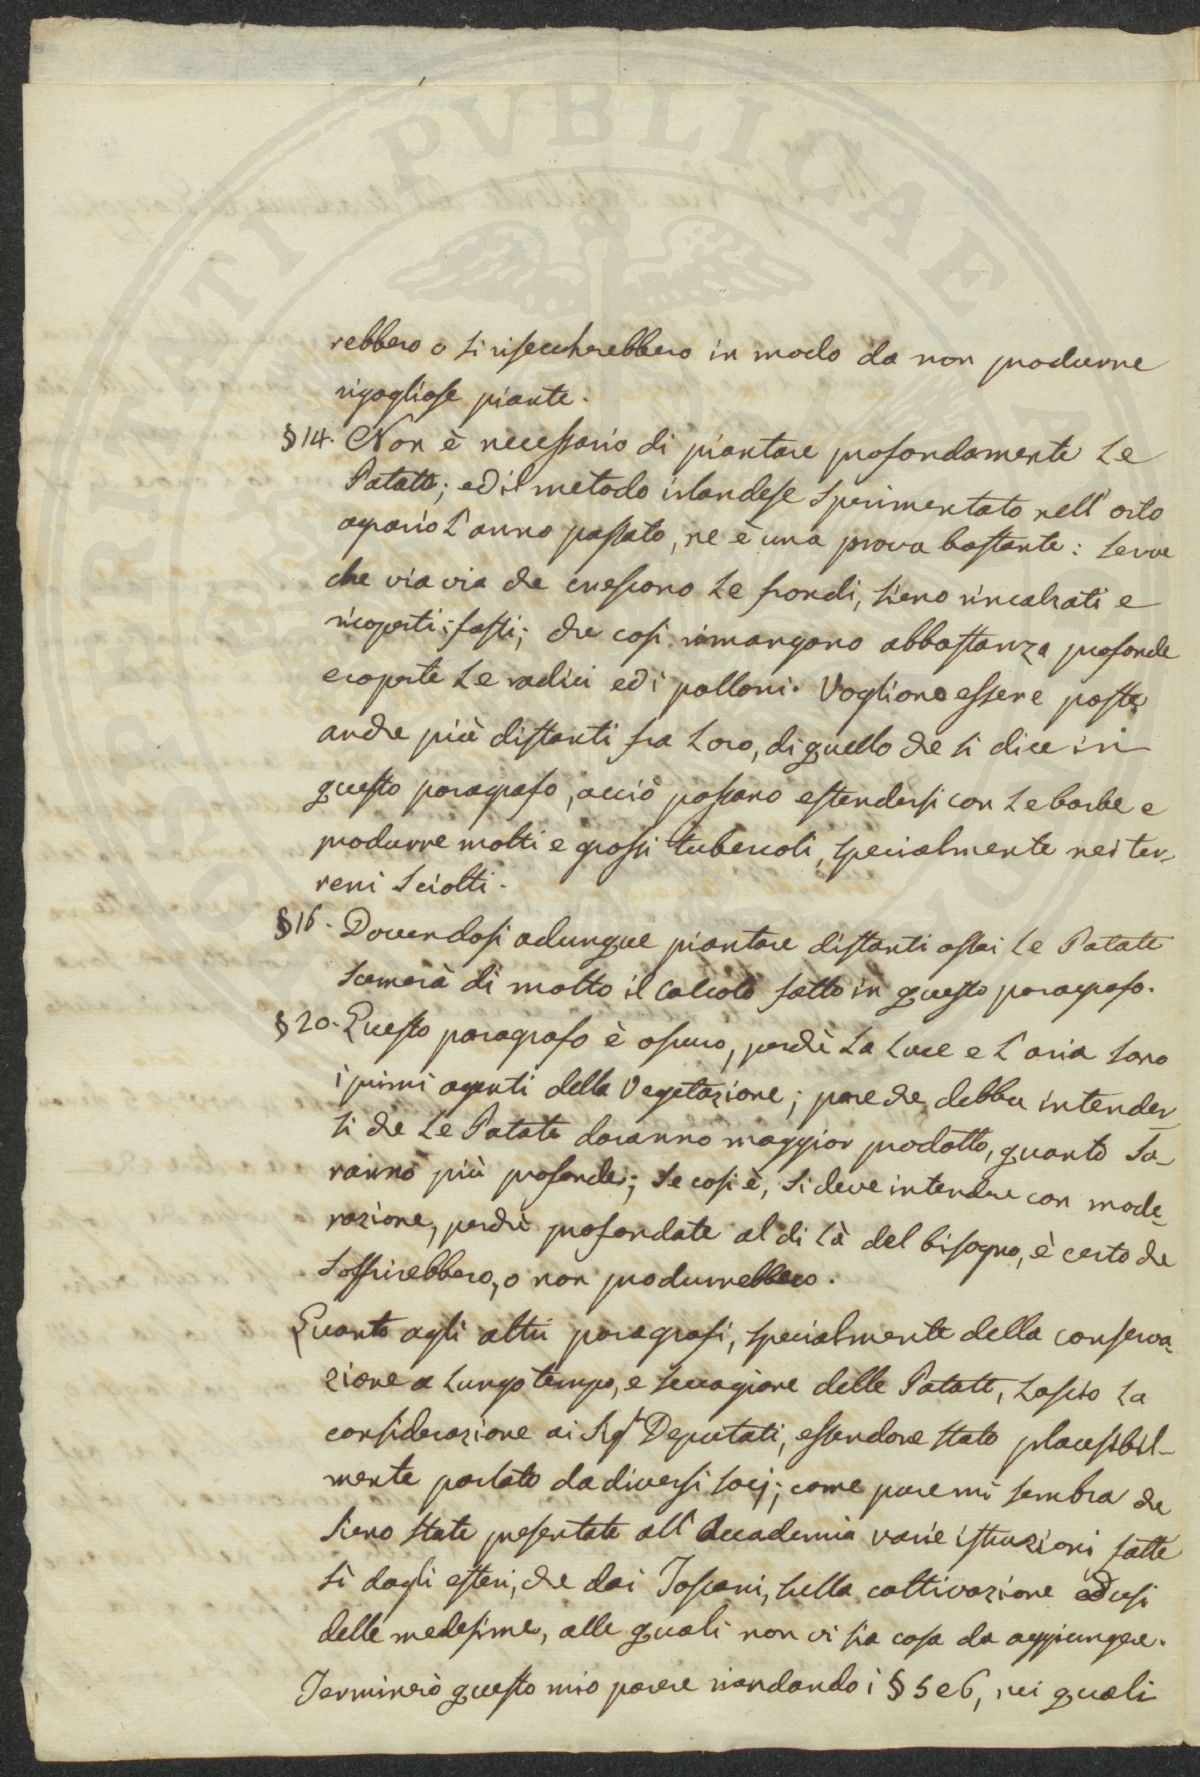 rebbero o si riseccherebbero in modo da non produrne
rigogliose piante.
§ 14. Non è necessario di piantare profondamente le
Patate; ed il metodo irlandese sperimentato nell' orto
agrario l'anno passato, ne è una prova bastante: serve
che via via che crescono le frondi, sieno rincalzati e
ricoperti i fusti; che così rimangono abbastanza profonde
e coperte le radici ed i polloni. Vogliono essere poste
anche più distanti fra loro, di quello che si dice in
questo paragrafo, acciò possano estendersi con le barbe e
produrre molti e grossi tubercoli, specialmente nei ter-
reni sciolti.
§ 16. Dovendosi adunque piantare distanti assai le Patate
scemerà di molto il calcolo fatto in questo paragrafo.
§ 20. Questo paragrafo è oscuro, perchè la luce e l'aria sono
i primi agenti della Vegetazione; pare che debba intender
si che le Patate daranno maggior prodotto, quanto sa-
ranno più profonde; se così è, si deve intendere con mode-
razione, perchè profondate al di là del bisogno, è certo che
soffrirebbero, o non produrrebbero.
Quanto agli altri paragrafi, specialmente della conserva-
zione a lungo tempo, e seccagione delle Patate, lascio la
considerazione ai Sigri Deputati, essendone stato plausibil-
mente parlato da diversi socj; come pure mi sembra che
sieno state presentate all' Accademia varie istruzioni fatte
sì dagli esteri, che dai Toscani, sulla coltivazione ed usi
delle medesime, alle quali non vi sia cosa da aggiungere.
Terminerò questo mio parere riandando i § 5 e 6, nei quali
PVBLICAE